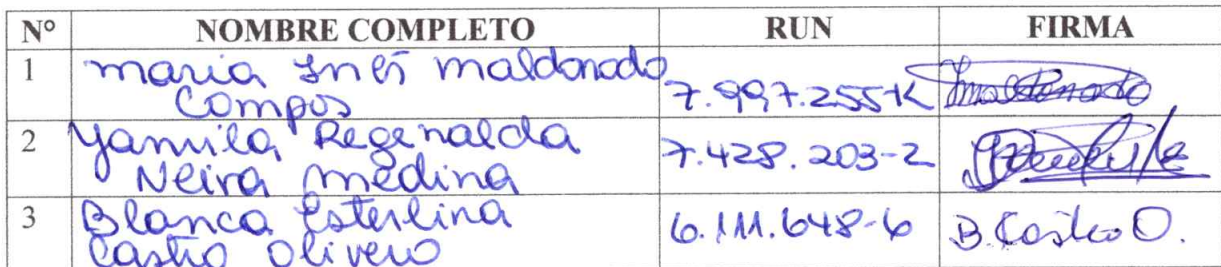 Nº NOMBRE COMPLETO RUN FIRMA
1 maria Ines maldonado
Campos 7.997.255-K Imaldonado
2 Yamila Regenalda
Neira medina 7.428.203-2
3 Blanca Esterlina
Castro Olivero 6.111.648-6 B. Castro O.